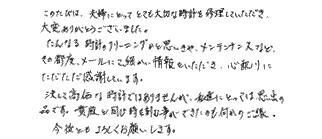 このたびは、夫婦にとって とても大切な時計を修理していただき、
大変ありがとうございました。
たんなる 時計のクリーニングかと思いきや、メンテナンスなど、
その都度、メールにて細かい情報をいただき、心配りに
ただただ感謝しています。
決して高価な 時計ではありませんが、私達にとっては 思い出の
品です。貴殿と同じ時を刻む事ができたのも何かのご縁。
今後とも よろしくお願いします。